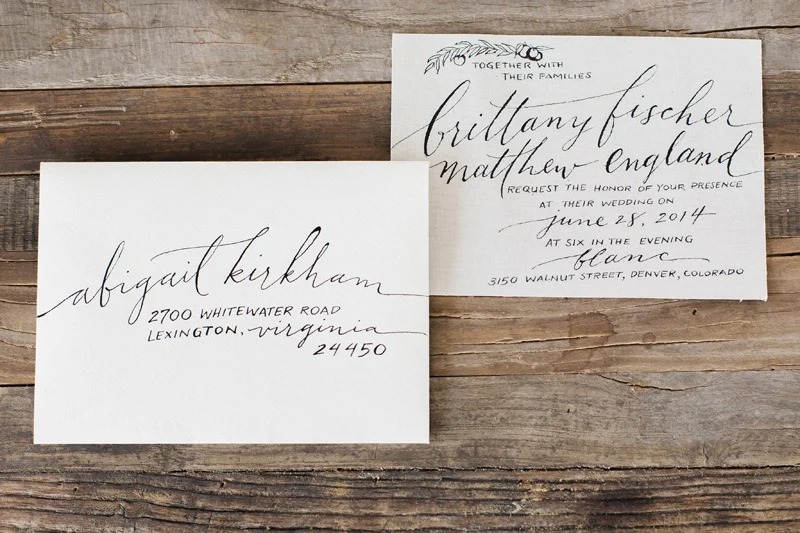 abigail kirkham
2700 WHITEWATER ROAD
LEXINGTON, virginia
24450
TOGETHER WITH
THEIR FAMILIES
brittany fischer
matthew england
REQUEST THE HONOR OF YOUR PRESENCE
AT THEIR WEDDING ON
june 28, 2014
AT SIX IN THE EVENING
blanc
3150 WALNUT STREET, DENVER, COLORADO